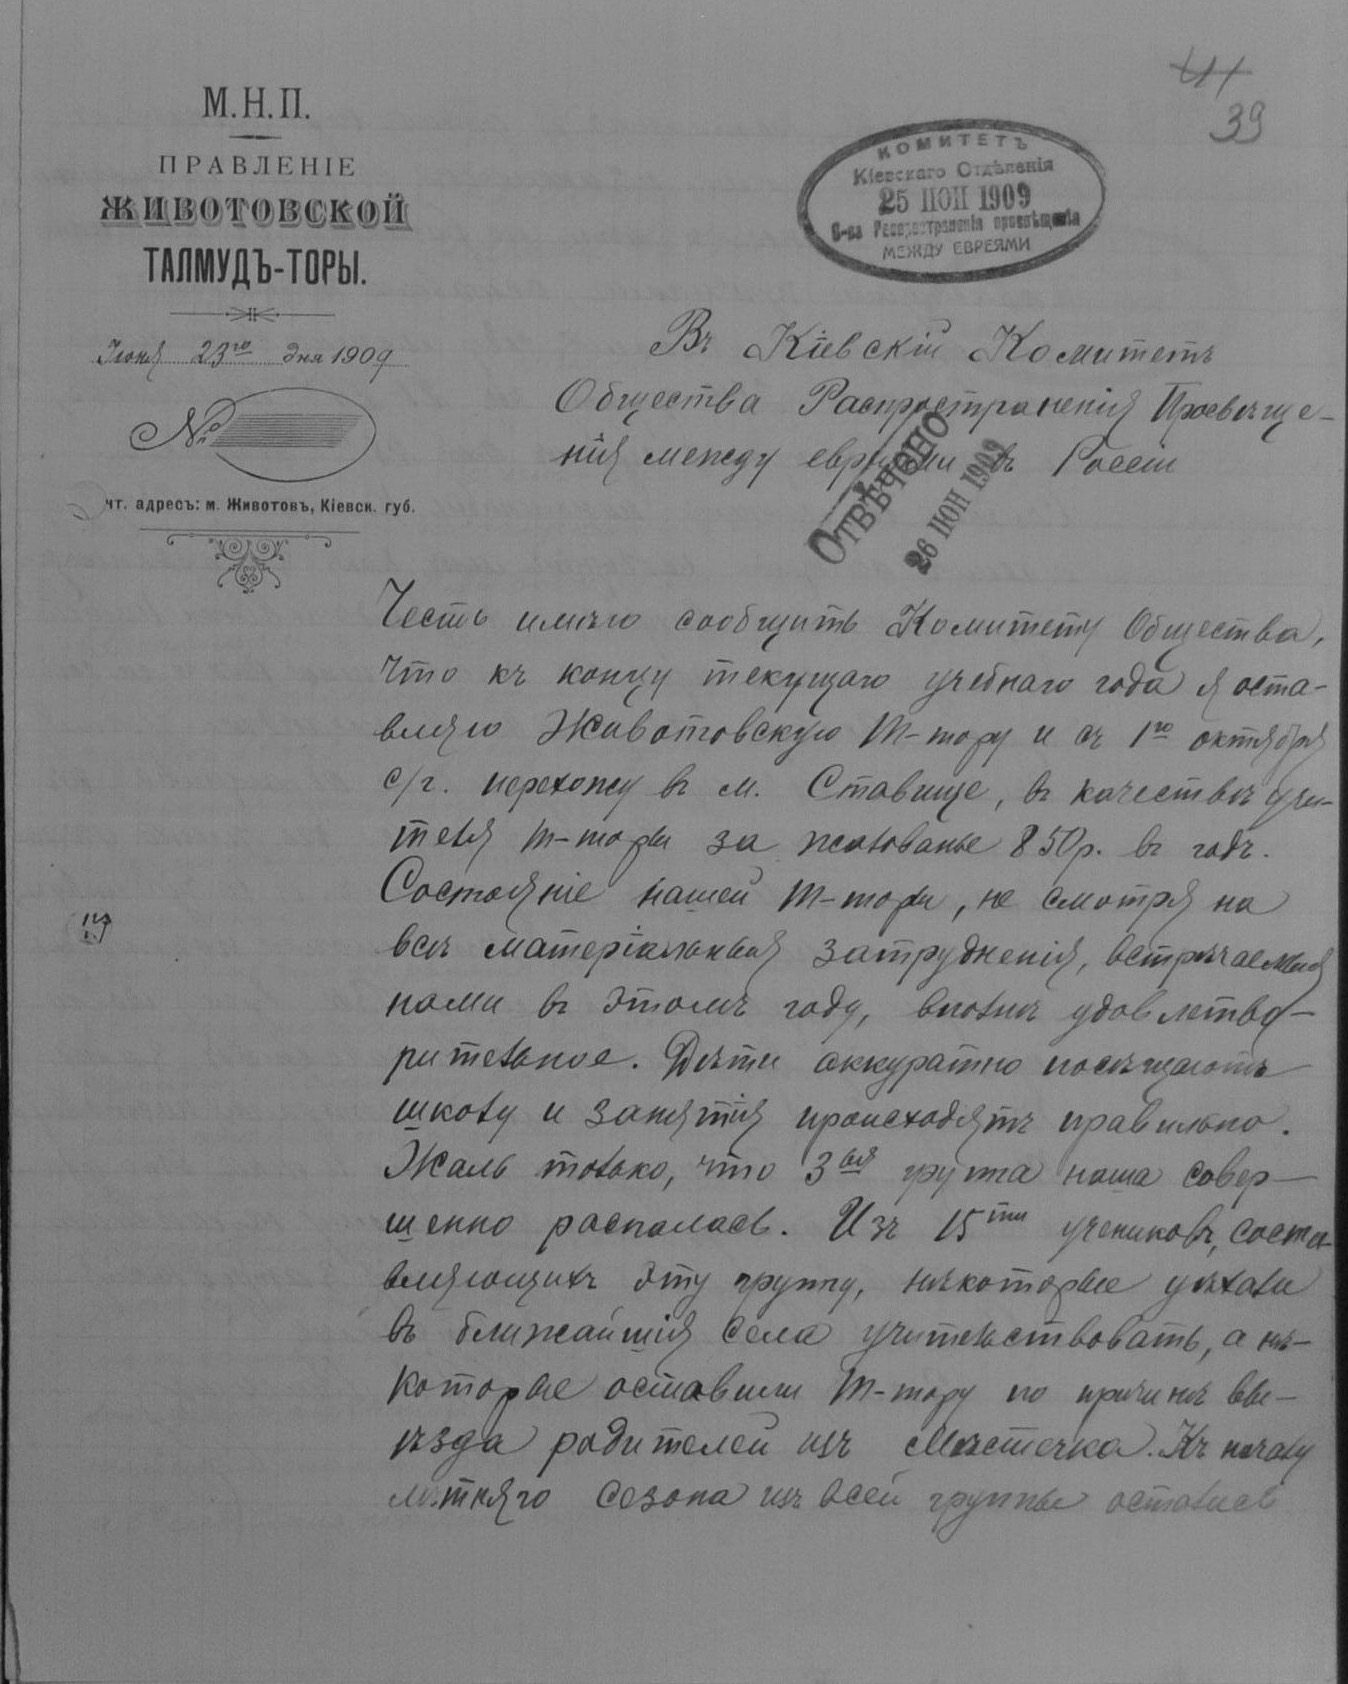 41
39
М.Н.П.
ПРАВЛЕНІЕ
ЖИВОТОВСКОЙ
ТАЛМУДЪ-ТОРЫ.
Іюня 23го дня 1909
№
чт. адресъ: м. Животовъ, Кіевск. губ.
КОМИТЕТЪ
Кіевскаго Отдѣленія
25 ІЮН 1909
О-ва Распространенія просвѣщенія
МЕЖДУ ЕВРЕЯМИ
Въ Кіевскій Комитетъ
Общества Распространенія Просвѣще-
нія между евреями въ Россіи
ОТВѢЧЕНО
26 ІЮН 1909
Честь имѣю сообщить Комитету Общества,
что къ концу текущаго учебнаго года я оста-
вляю Животовскую Т-тору и съ 1го октября
с/г. перехожу въ м. Ставище, въ качествѣ учи-
теля т-торы за жалованье 850р. въ годъ.
Состояніе нашей Т-торы, не смотря на
всѣ матеріальныя затрудненія, встрѣчаемыя
нами въ этомъ году, вполнѣ удовлетво-
рительное. Дѣти аккуратно посѣщаютъ
школу и занятія происходятъ правильно.
Жаль только, что 3ья группа наша совер-
шенно распалась. Изъ 15ти учениковъ, соста-
вляющихъ эту группу, нѣкоторые уѣхали
въ ближайшія села учительствовать, а нѣ-
которые оставили Т-тору по причинѣ вы-
ѣзда родителей изъ мѣстечка. Къ началу
лѣтняго сезона изъ всей группы остались